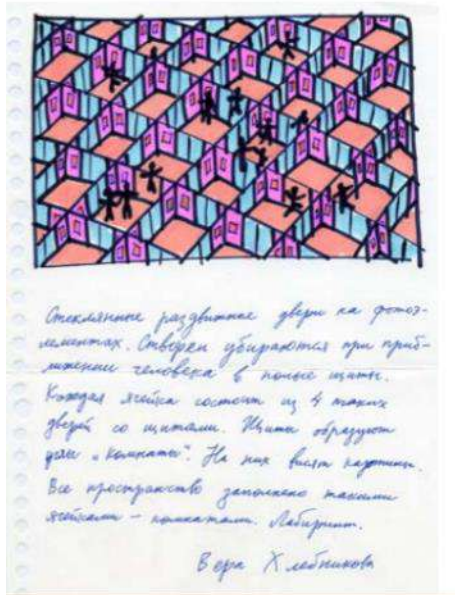 Стеклянные раздвижные двери на фотоэ-
лементах. Створки убираются при приб-
лижении человека в полые щиты.
Каждая ячейка состоит из 4 таких
дверей со щитами. Щиты образуют
углы „комнаты“. На них висят картины.
Все пространство заполнено такими
ячейками – комнатами. Лабиринт.
Вера Хлебникова